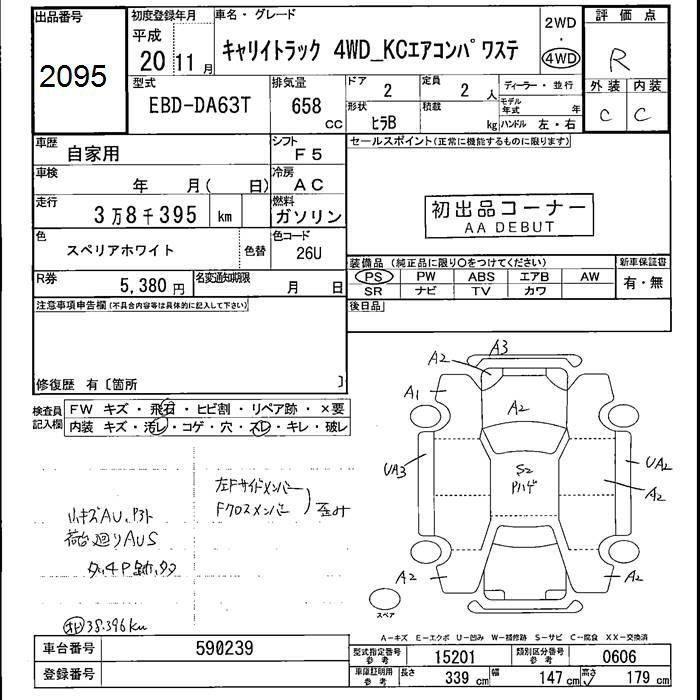 出品番号
2095
初度登録年月
平成
20 11 月
車名・グレード
キャリイトラック 4WD_KCエアコンパワステ
2WD
・
4WD
評価点
R
外装 内装
C C
型式
EBD-DA63T
排気量
658
CC
ドア
2
定員
2 人
ディーラー・並行
モデル
年式 年
形状
ヒラB
積載
kg
ハンドル 左・右
車歴
自家用
シフト
F5
セールスポイント(正常に機能するものに限ります)
車検
年 月( 日)
冷房
AC
走行
3万8千395 km
燃料
ガソリン
初出品コーナー
AA DEBUT
色
スペリアホワイト
色替
色コード
26U
装備品(純正品に限り○をつけてください)
新車保証書
PS PW ABS エアB AW
SR ナビ TV カワ
有・無
R券
5,380 円
名変通知期限
月 日
後日品
注意事項申告欄(不具合内容等は具体的に記入して下さい)
修復歴 有〔箇所 〕
検査員
記入欄
FW キズ・飛石・ヒビ割・リペア跡・×要
内装 キズ・汚レ・コゲ・穴・スレ・キレ・破レ
A3
A2
A1
A2
UA3
S2
UA2
A2
A2
A2
スペア
左Fサイドメンバー
Fクロスメンバー
歪み
小キズAU
荷台廻りAUS
38,396km
A−キズ E−エクボ U−凹み W−補修跡 S−サビ C−腐食 XX−交換済
車台番号
590239
登録番号
型式指定番号
参考
15201
類別区分番号
参考
0606
車庫証明用
参考
長さ
339 cm
幅
147 cm
高さ
179 cm